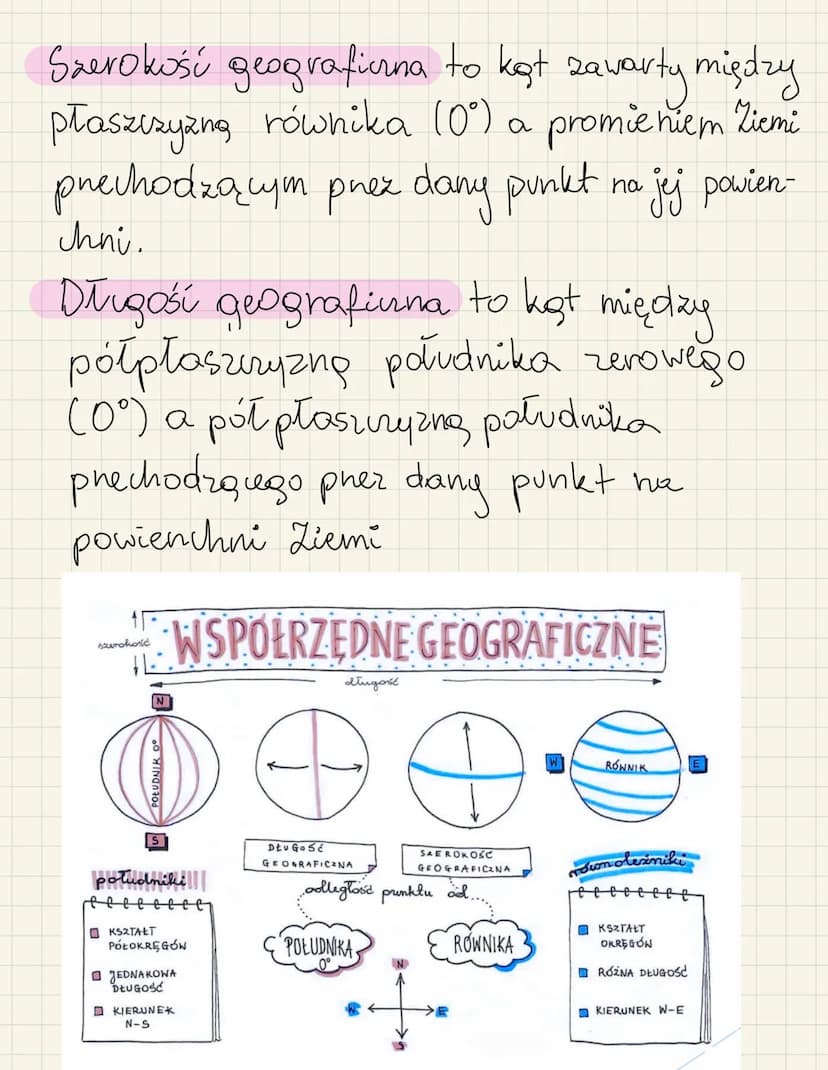 Szerokość geograficzna to kąt zawarty między
płaszczyzną równika (0°) a promieniem Ziemi
przechodzącym przez dany punkt na jej powierz-
chni.
Długość geograficzna to kąt między
półpłaszczyzną południka zerowego
(0°) a półpłaszczyzną południka
przechodzącego przez dany punkt na
powierzchni Ziemi
szerokość
WSPÓŁRZĘDNE GEOGRAFICZNE
długość
N
POŁUDNIK 0°
S
W
RÓWNIK
E
DŁUGOŚĆ
GEOGRAFICZNA
SZEROKOŚĆ
GEOGRAFICZNA
odległość punktu od...
POŁUDNIKA
0°
RÓWNIKA
N
W
E
S
południki
KSZTAŁT
PÓŁOKRĘGÓW
JEDNAKOWA
DŁUGOŚĆ
KIERUNEK
N-S
równoleżniki
KSZTAŁT
OKRĘGÓW
RÓŻNA DŁUGOŚĆ
KIERUNEK W-E